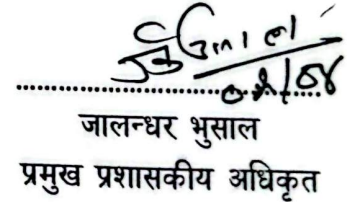 जालन्धर भुसाल
प्रमुख प्रशासकीय अधिकृत